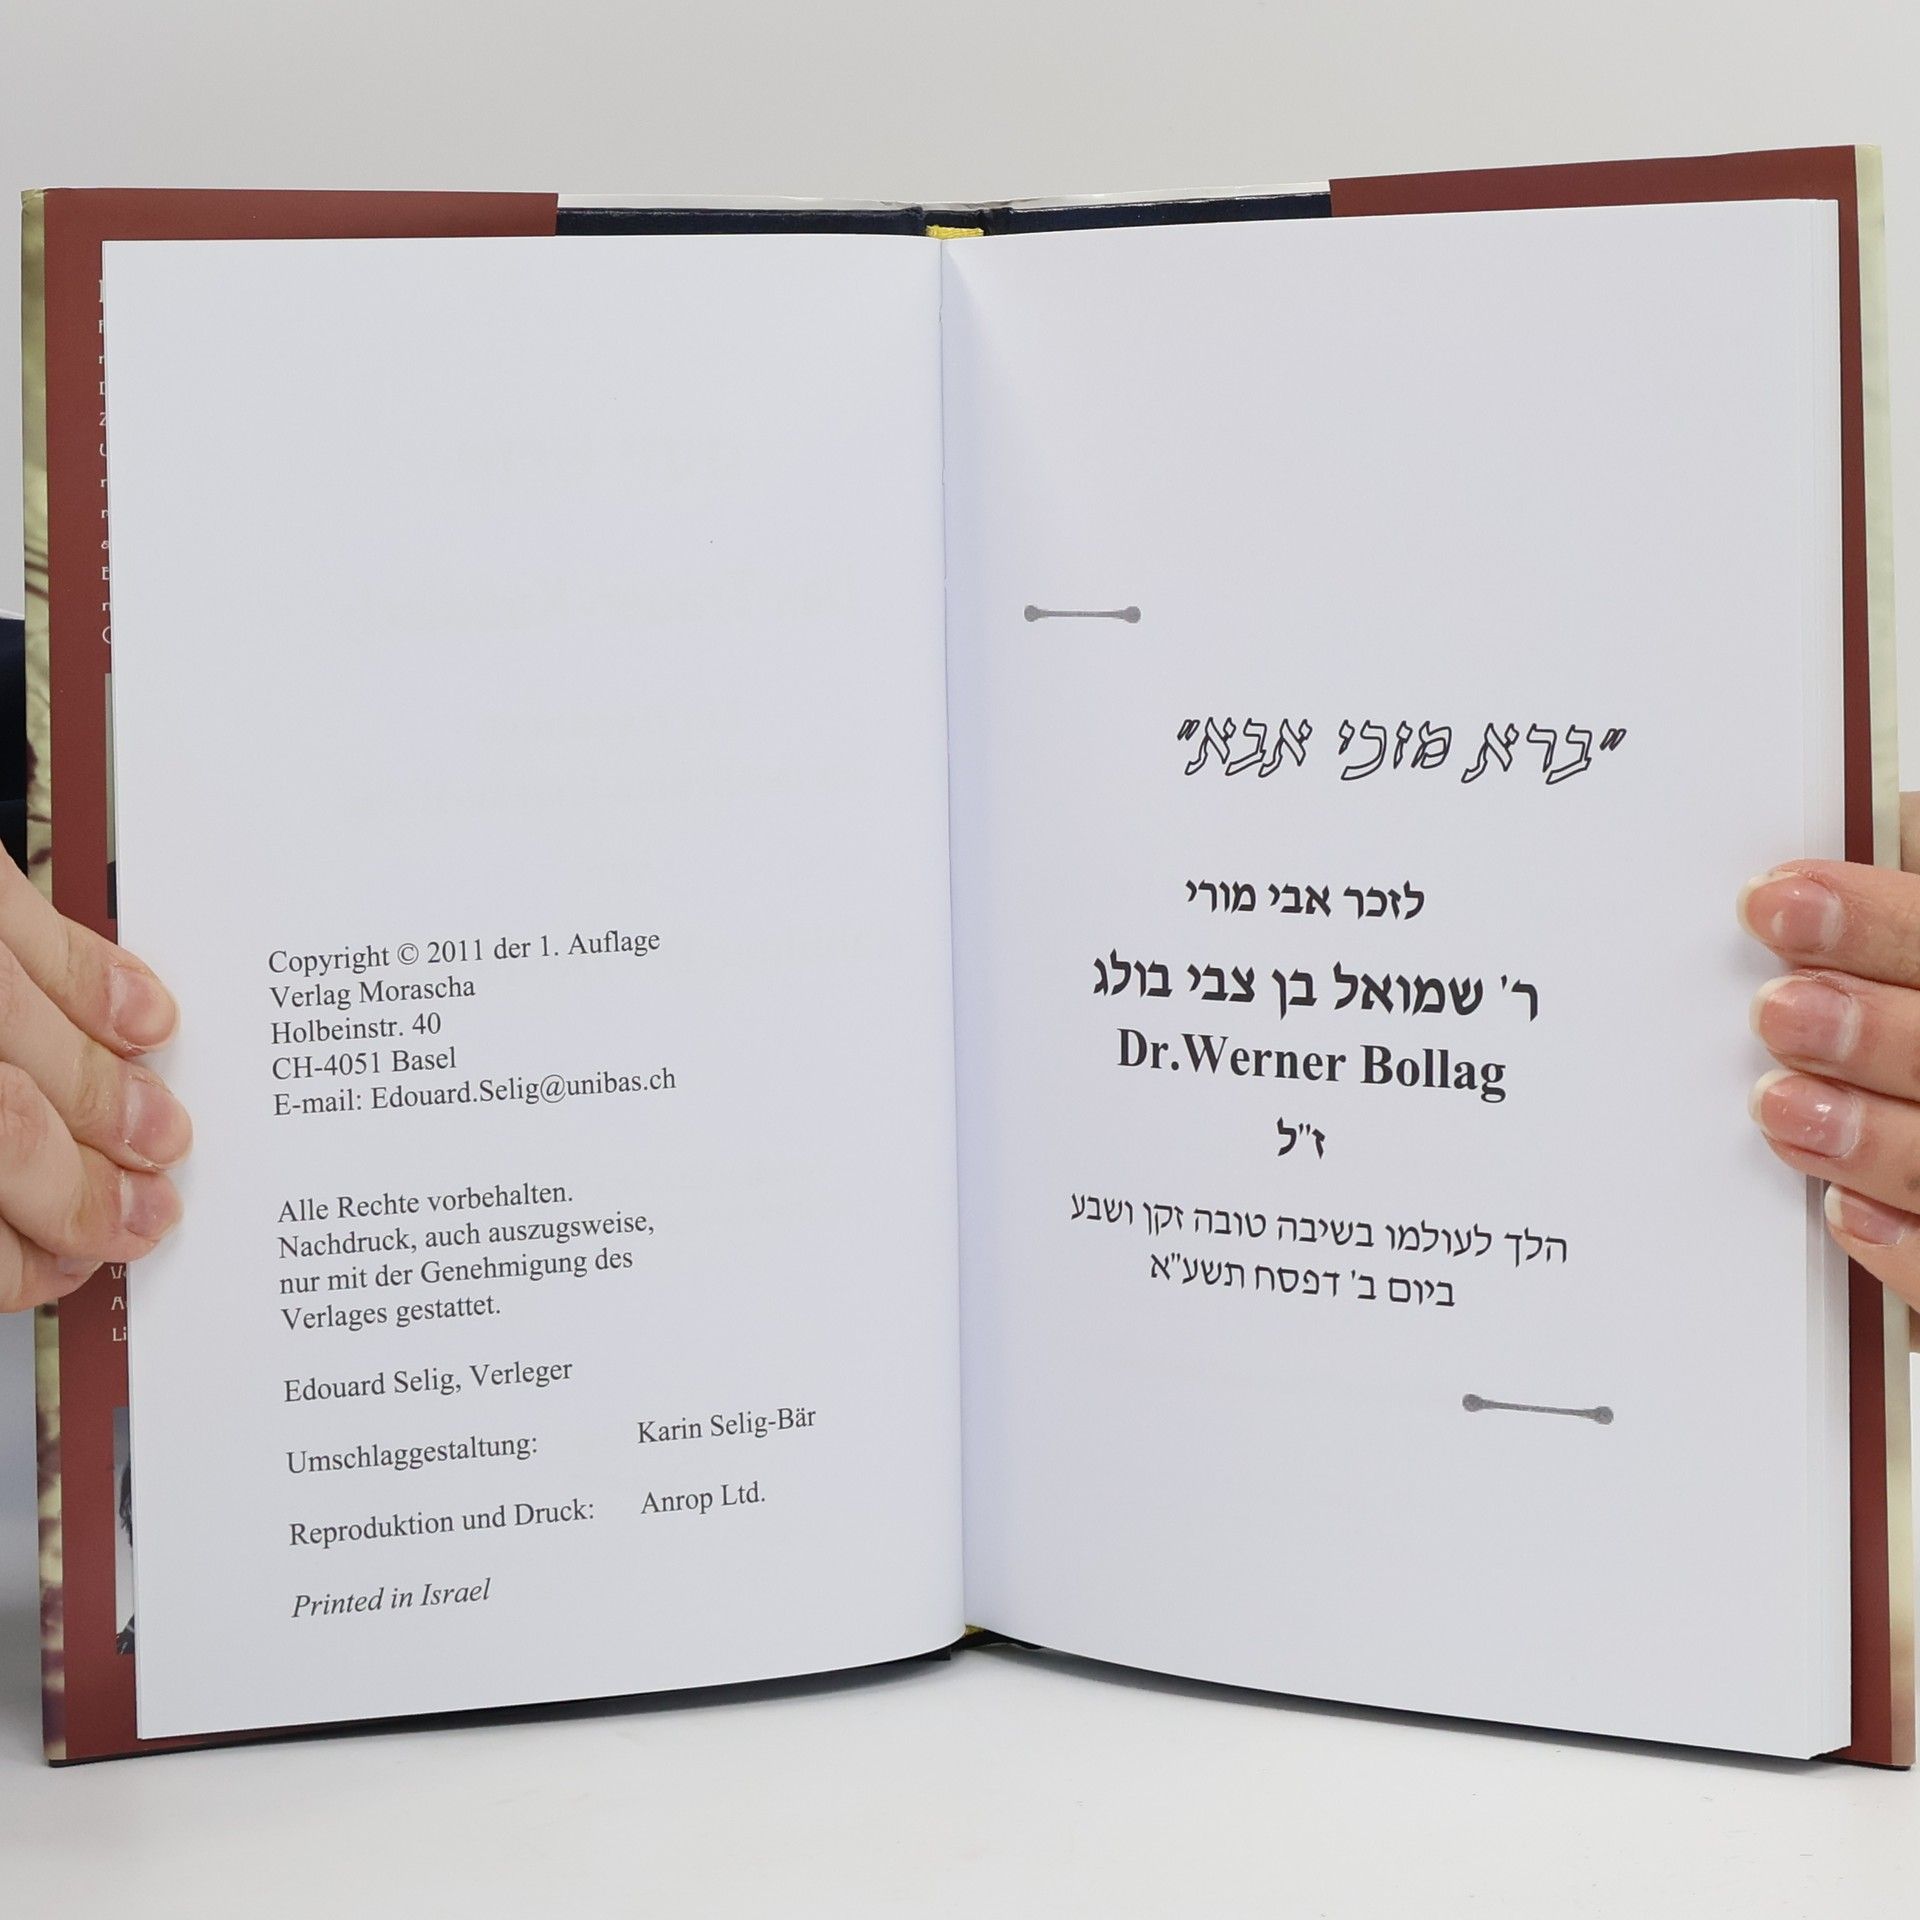 Copyright © 2011 der 1. Auflage
Verlag Morascha
Holbeinstr. 40
CH-4051 Basel
E-mail: Edouard.Selig@unibas.ch
Alle Rechte vorbehalten.
Nachdruck, auch auszugsweise,
nur mit der Genehmigung des
Verlages gestattet.
Edouard Selig, Verleger
Umschlaggestaltung: Karin Selig-Bär
Reproduktion und Druck: Anrop Ltd.
Printed in Israel
"ברא מזכי אבא"
לזכר אבי מורי
ר' שמואל בן צבי בולג
Dr.Werner Bollag
ז"ל
הלך לעולמו בשיבה טובה זקן ושבע
ביום ב' דפסח תשע"א